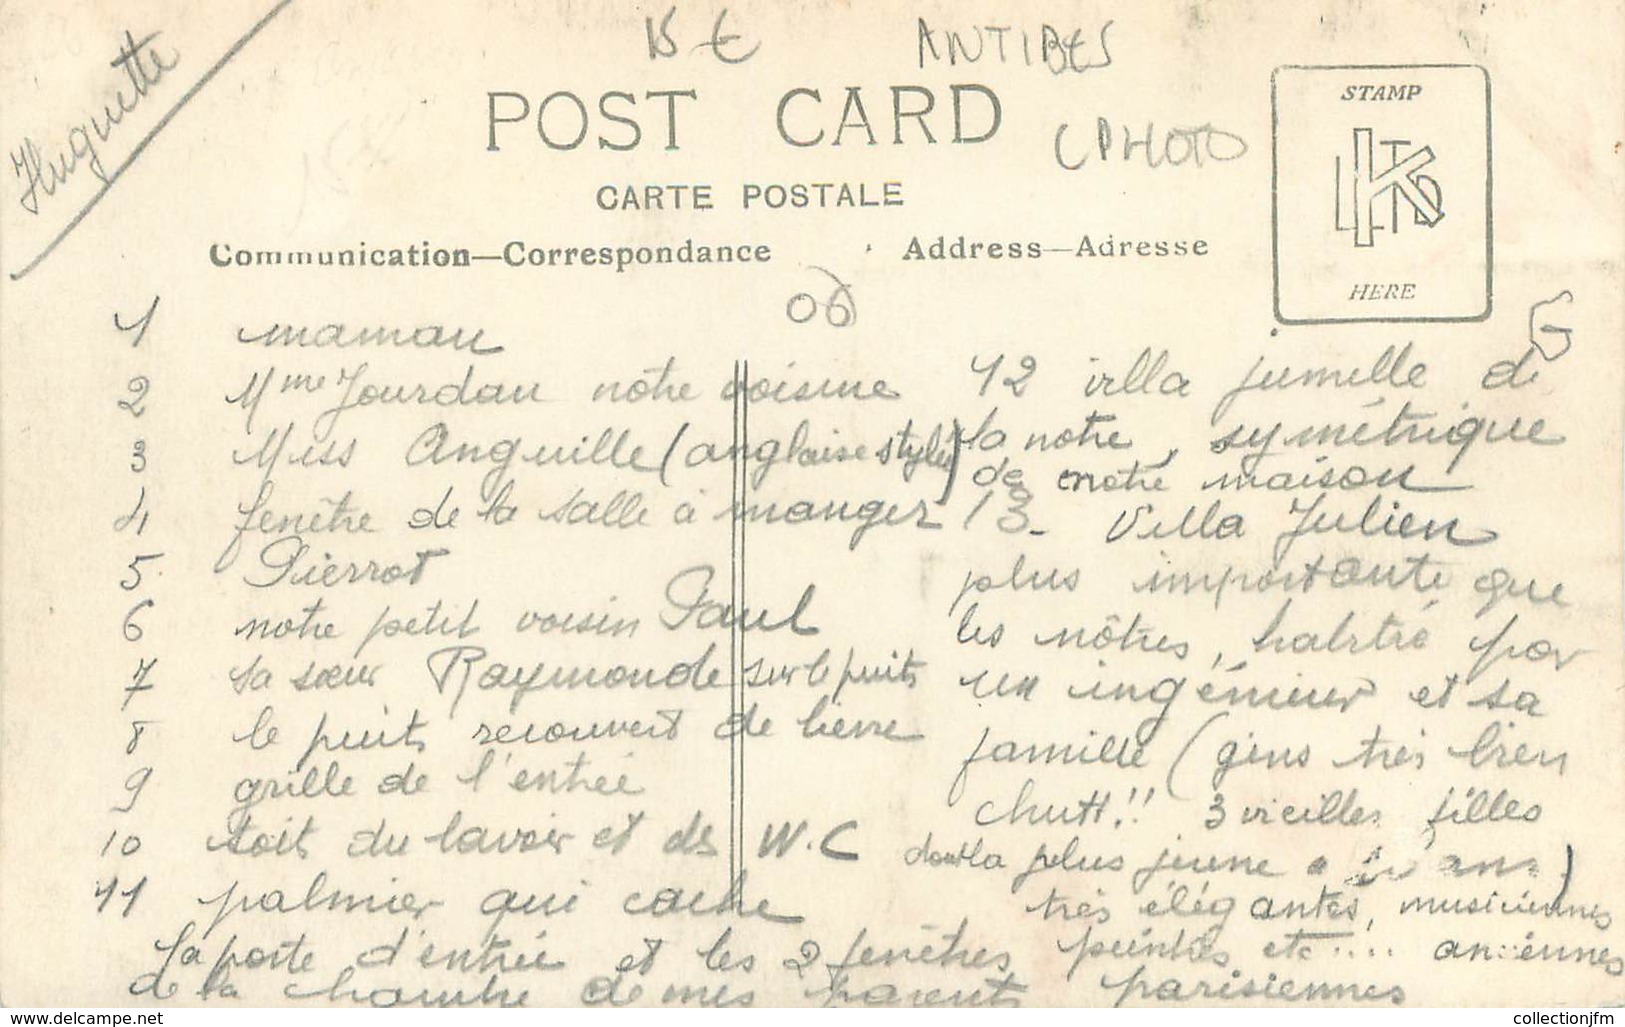 15 €
ANTIBES
Huguette
POST CARD
CPHOTO
CARTE POSTALE
Communication—Correspondance
Address—Adresse
STAMP
K LTD
HERE
06
G
1 maman
2 Mme Jourdan nôtre voisine
3 Miss Anguille (anglaise stylée)
4 fenêtre de la salle à manger
5. Pierrot
6 notre petit voisin Paul
7 sa sœur Raymonde sur le puits
8 le puits recouvert de lierre
9 grille de l'entrée
10 toit du lavoir et des W.C
11 palmier qui cache
la porte d'entrée et les 2 fenêtres
de la chambre de mes parents
12 villa jumelle de
la notre, symétrique
de notre maison
13 - Villa Julien
plus importante que
les nôtres, habitée par
un ingénieur et sa
famille (gens très bien
chutt!! 3 vieilles filles
dont la plus jeune a ans)
très élégantes, musiciennes
peintres etc.... anciennes
parisiennes
www.delcampe.net
collectionjfm